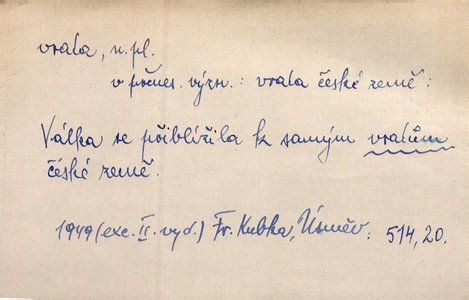 vrata, n. pl.
v přenes. význ.: vrata české země:
Válka se přiblížila k samým vratům
české země.
1949 (exc. II. vyd.) Fr. Kubka, Úsměv. 514, 20.